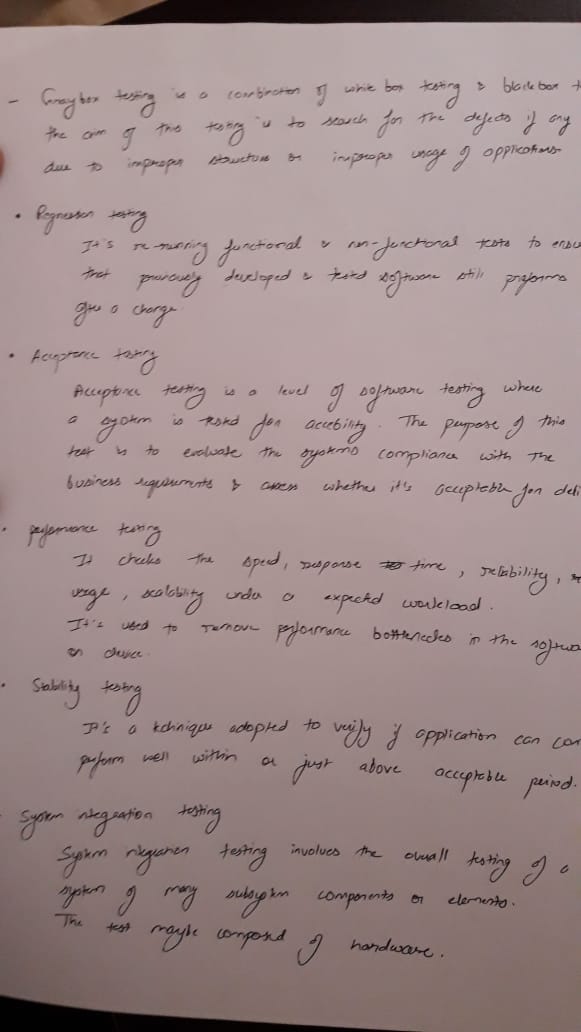 - Graybox testing is a combination of white box testing & black box t
the aim of this testing is to search for the defects if any
due to improper structure or improper usage of applications
• Regression testing
It's re-running functional & non-functional tests to ensu
that previously developed & tested software still preforms
given a change.
• Acceptance testing
Acceptance testing is a level of software testing where
a system is tested for accebility. The purpose of this
test is to evaluate the systems compliance with the
business requirements & assess whether it's acceptable for deli
• performance testing
It checks the speed, response time, reliability,
usage, scalability under a expected workload.
It's used to remove performance bottlenecks in the softwa
or device.
• Stability testing
It's a technique adopted to verify if application can con
perform well within or just above acceptable period.
System integration testing
System integration testing involves the overall testing of a
system of many subsystem components or elements.
The test maybe composed of hardware.